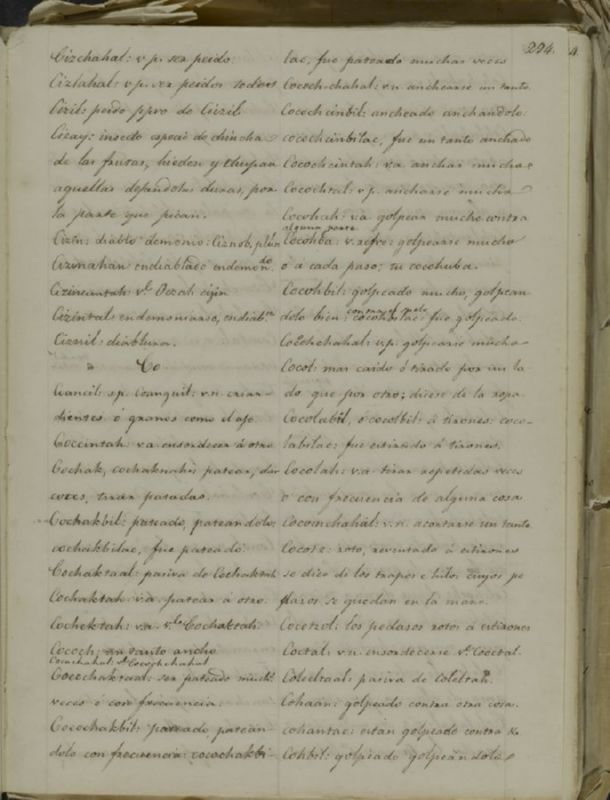 294.
Cizchahal: v p. ser peido.
Ciztahal: v p. ser peidos todos
Cizil: peido ppro de Ciizil
Cicay: insecto especie de chincha
de las frutas, hieden y chupan
aquellas dejandolas duras, por
la parte que pican.
Cizin: diablo demonio: Ciznob, plu
Cizinahan endiablado endemon.do
Cizincuntah vle Occol: cijin
Cizintal: endemoniarse, endiab
Cicnil: diablura.
Co
Coancil: sp. Coanquil: v.n. criar
dientes ó granos como el ajo
Coccintah: v a ensordecer á otro
Cochak, cochaknahi: patear, dar
coces, tirar patadas.
Cochakbil: pateado, pateandolo
cochakbilac, fue pateado.
Cochaktaal: pasiva de Cochaktah
Cochaktah: v.a. patear á otro.
Cochektah: v.a. vle Cochaktah.
Cococh; un tanto ancho
Cocochahal: vle Cocochchahal
Cocochaktaal: ser pateado muchs
veces ó con frecuencia.
Cocochakbil: pateado patean-
dolo con frecuencia: cocochakbi-
lac, fue pateado muchas veces
Cococh-chahal: v.n. anchearse un tanto
Cocochcinbil: ancheado anchandolo:
cocochcinbilac, fue un tanto anchado
Cocochcintah: v.a. anchar mucho
Cocochtal: v p. ancharse mucho
Cocohah: v.a golpear mucho contra
alguna parte
Cocohba: v. refre: golpearse mucho
ó á cada paso; tu cocohuba.
Cocohbil: golpeado mucho, golpean
dolo bien: cocohbilac fue golpeado
Cocohchahal: v.p. golpearse mucho
Cocol: mas caido ó tirado por un la-
do que por otro; dicese de la ropa
Cocolabil, ó cocolbil: á tirones: coco-
labilac: fue estirado á tirones.
Cocolah: v.a. tirar repetidas veces
ó con frecuencia de alguna cosa
Cocomchahal: v.n. acortarse un tanto
Cocotz: roto, reventado á estirones
se dice de los trapos é hilos cuyos pe
dazos se quedan en la mano.
Cocotzol: los pedasos rotos á estirones
Coctal: v.n. ensordecerse vle Cooctal.
Coletraal: pasiva de coletrah.
Cohaan: golpeado contra otra cosa.
cohantac: estan golpeado contra
Cohbil: golpeado golpeandolo